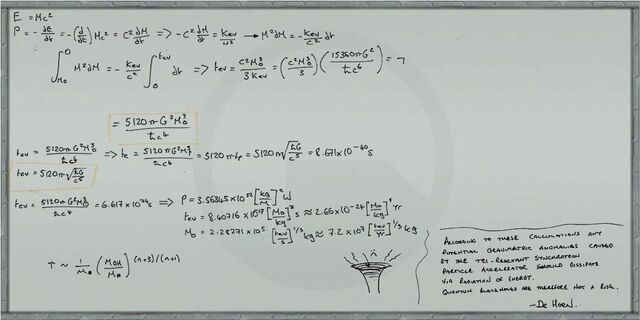 E = Mc²
P = - dE/dt = -(d/dt) Mc² = c² dM/dt => -c² dM/dt = Kev/M² → M² dM = - Kev/c² dt
∫ M₀ 0 M² dM = - Kev/c² ∫ 0 tev dt => tev = c² M₀³/3 Kev = (c² M₀³/3) (15360πG²/ħc⁶) = ¬
= 5120πG²M₀³/ħc⁴
tev = 5120πG²M₀³/ħc⁴ => te = 5120πG²M³/ħc⁴ = 5120πtp = 5120π√ħG/c⁵ = 8.671×10⁻⁴⁰ s
tev = 5120π√ħG/c⁵
tev = 5120πG²M₀³/ħc⁴ = 6.617×10⁻⁷⁴ s => P = 3.56345×10³² [kg/M₀]² W
tev = 8.40716×10⁻¹⁷ [M₀/kg]³ s ≈ 2.66×10⁻²⁴ [M₀/kg]³ yr
M₀ = 2.28271×10⁵ [tev/s]^1/3 kg ≈ 7.2×10⁷ [tev/yr]^1/3 kg
τ ~ 1/M* (MBH/M*)^(n+3)/(n+1)
ACCORDING TO THESE CALCULATIONS ANY
POTENTIAL GRAVIMETRIC ANOMALIES CAUSED
BY THE TRI-REACTANT SYNCHROTRON
PARTICLE ACCELERATOR SHOULD DISSIPATE
VIA RADIATION OF ENERGY.
QUANTUM BLACKHOLES ARE THEREFORE NOT A RISK.
- DE HOERN.